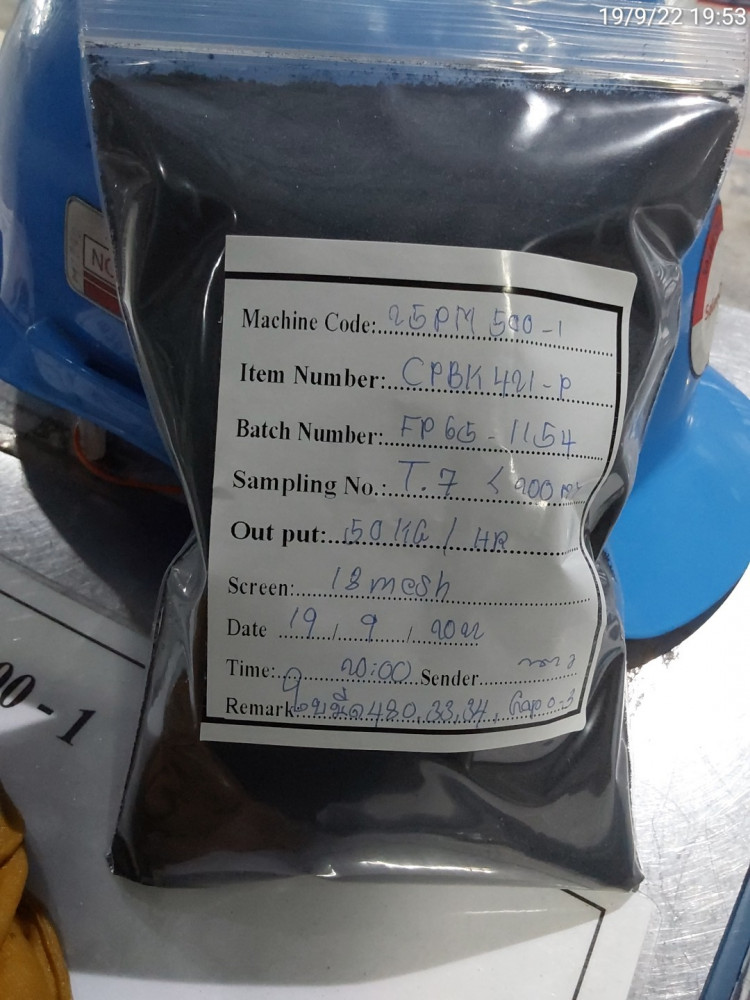 19/9/22 19:53
NO
Machine Code: 25PM 500-1
Item Number: CPBK421-P
Batch Number: FP65-1154
Sampling No.: T.7 < 200
Out put: 50 KG / HR
Screen: 18 mesh
Date 19 / 9 / 2022
Time: 20:00 Sender
Remark ใบมีด 480, 33, 34, Gap 0.3
00-1